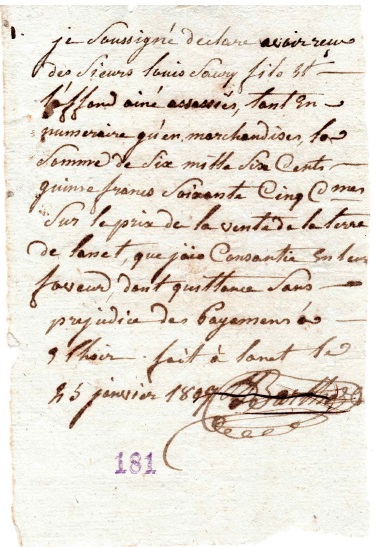 1.
je Soussigné declare avoir reçu
des Sieurs louis Saury fils et
ainé associés, tant En
numeraire qu'en marchandises, la
Somme de Six mille Six Cents
quinze francs Soixante Cinq Cmes
Sur le prix de la vente de la terre
de lanet, que jaie Consantie En leur
faveur, dont quittance Sans
prejudice des payemens à
fait à lanet le
25 janvier
181